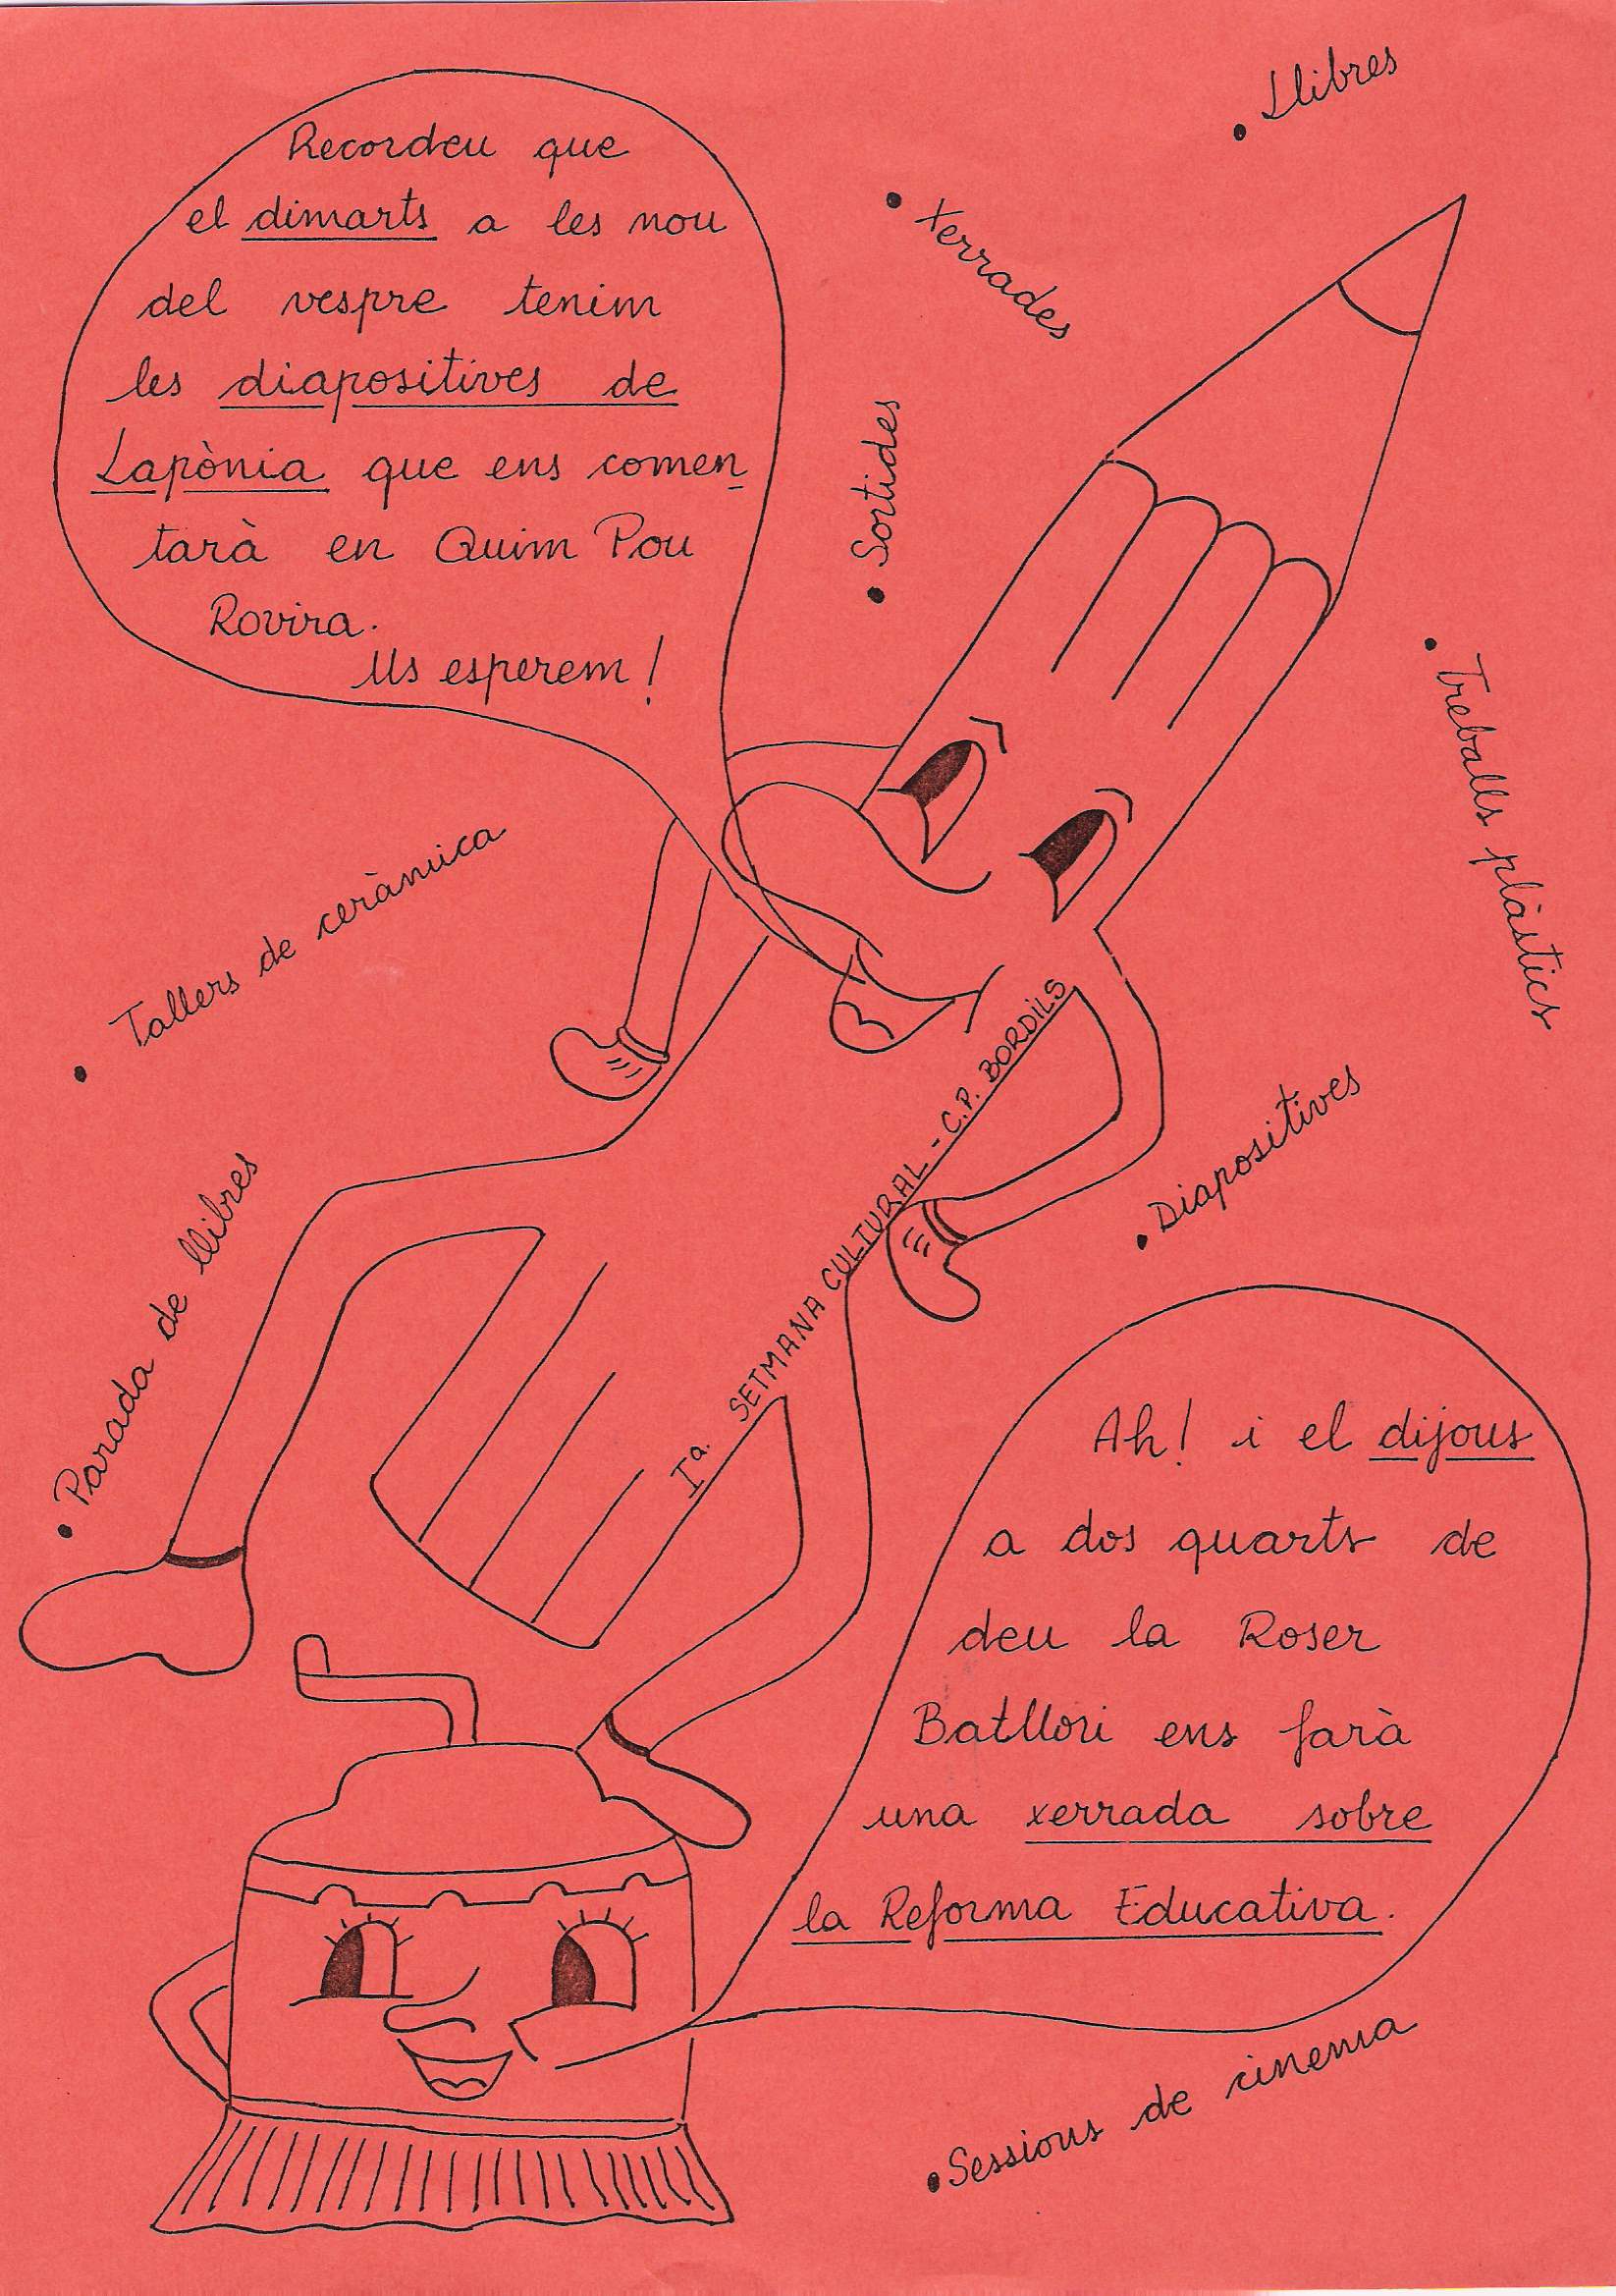 Recordeu que
el dimarts a les nou
del vespre tenim
les diapositives de
Lapònia que ens comen
tarà en Quim Pou
Rovira.
Us esperem!
• Llibres
• Xerrades
• Sortides
• Treballs plàstics
• Tallers de ceràmica
• Diapositives
• Parada de llibres
Iª. SETMANA CULTURAL - C.P. BORDILS
Ah! i el dijous
a dos quarts de
deu la Roser
Batllori ens farà
una xerrada sobre
la Reforma Educativa.
• Sessions de cinema